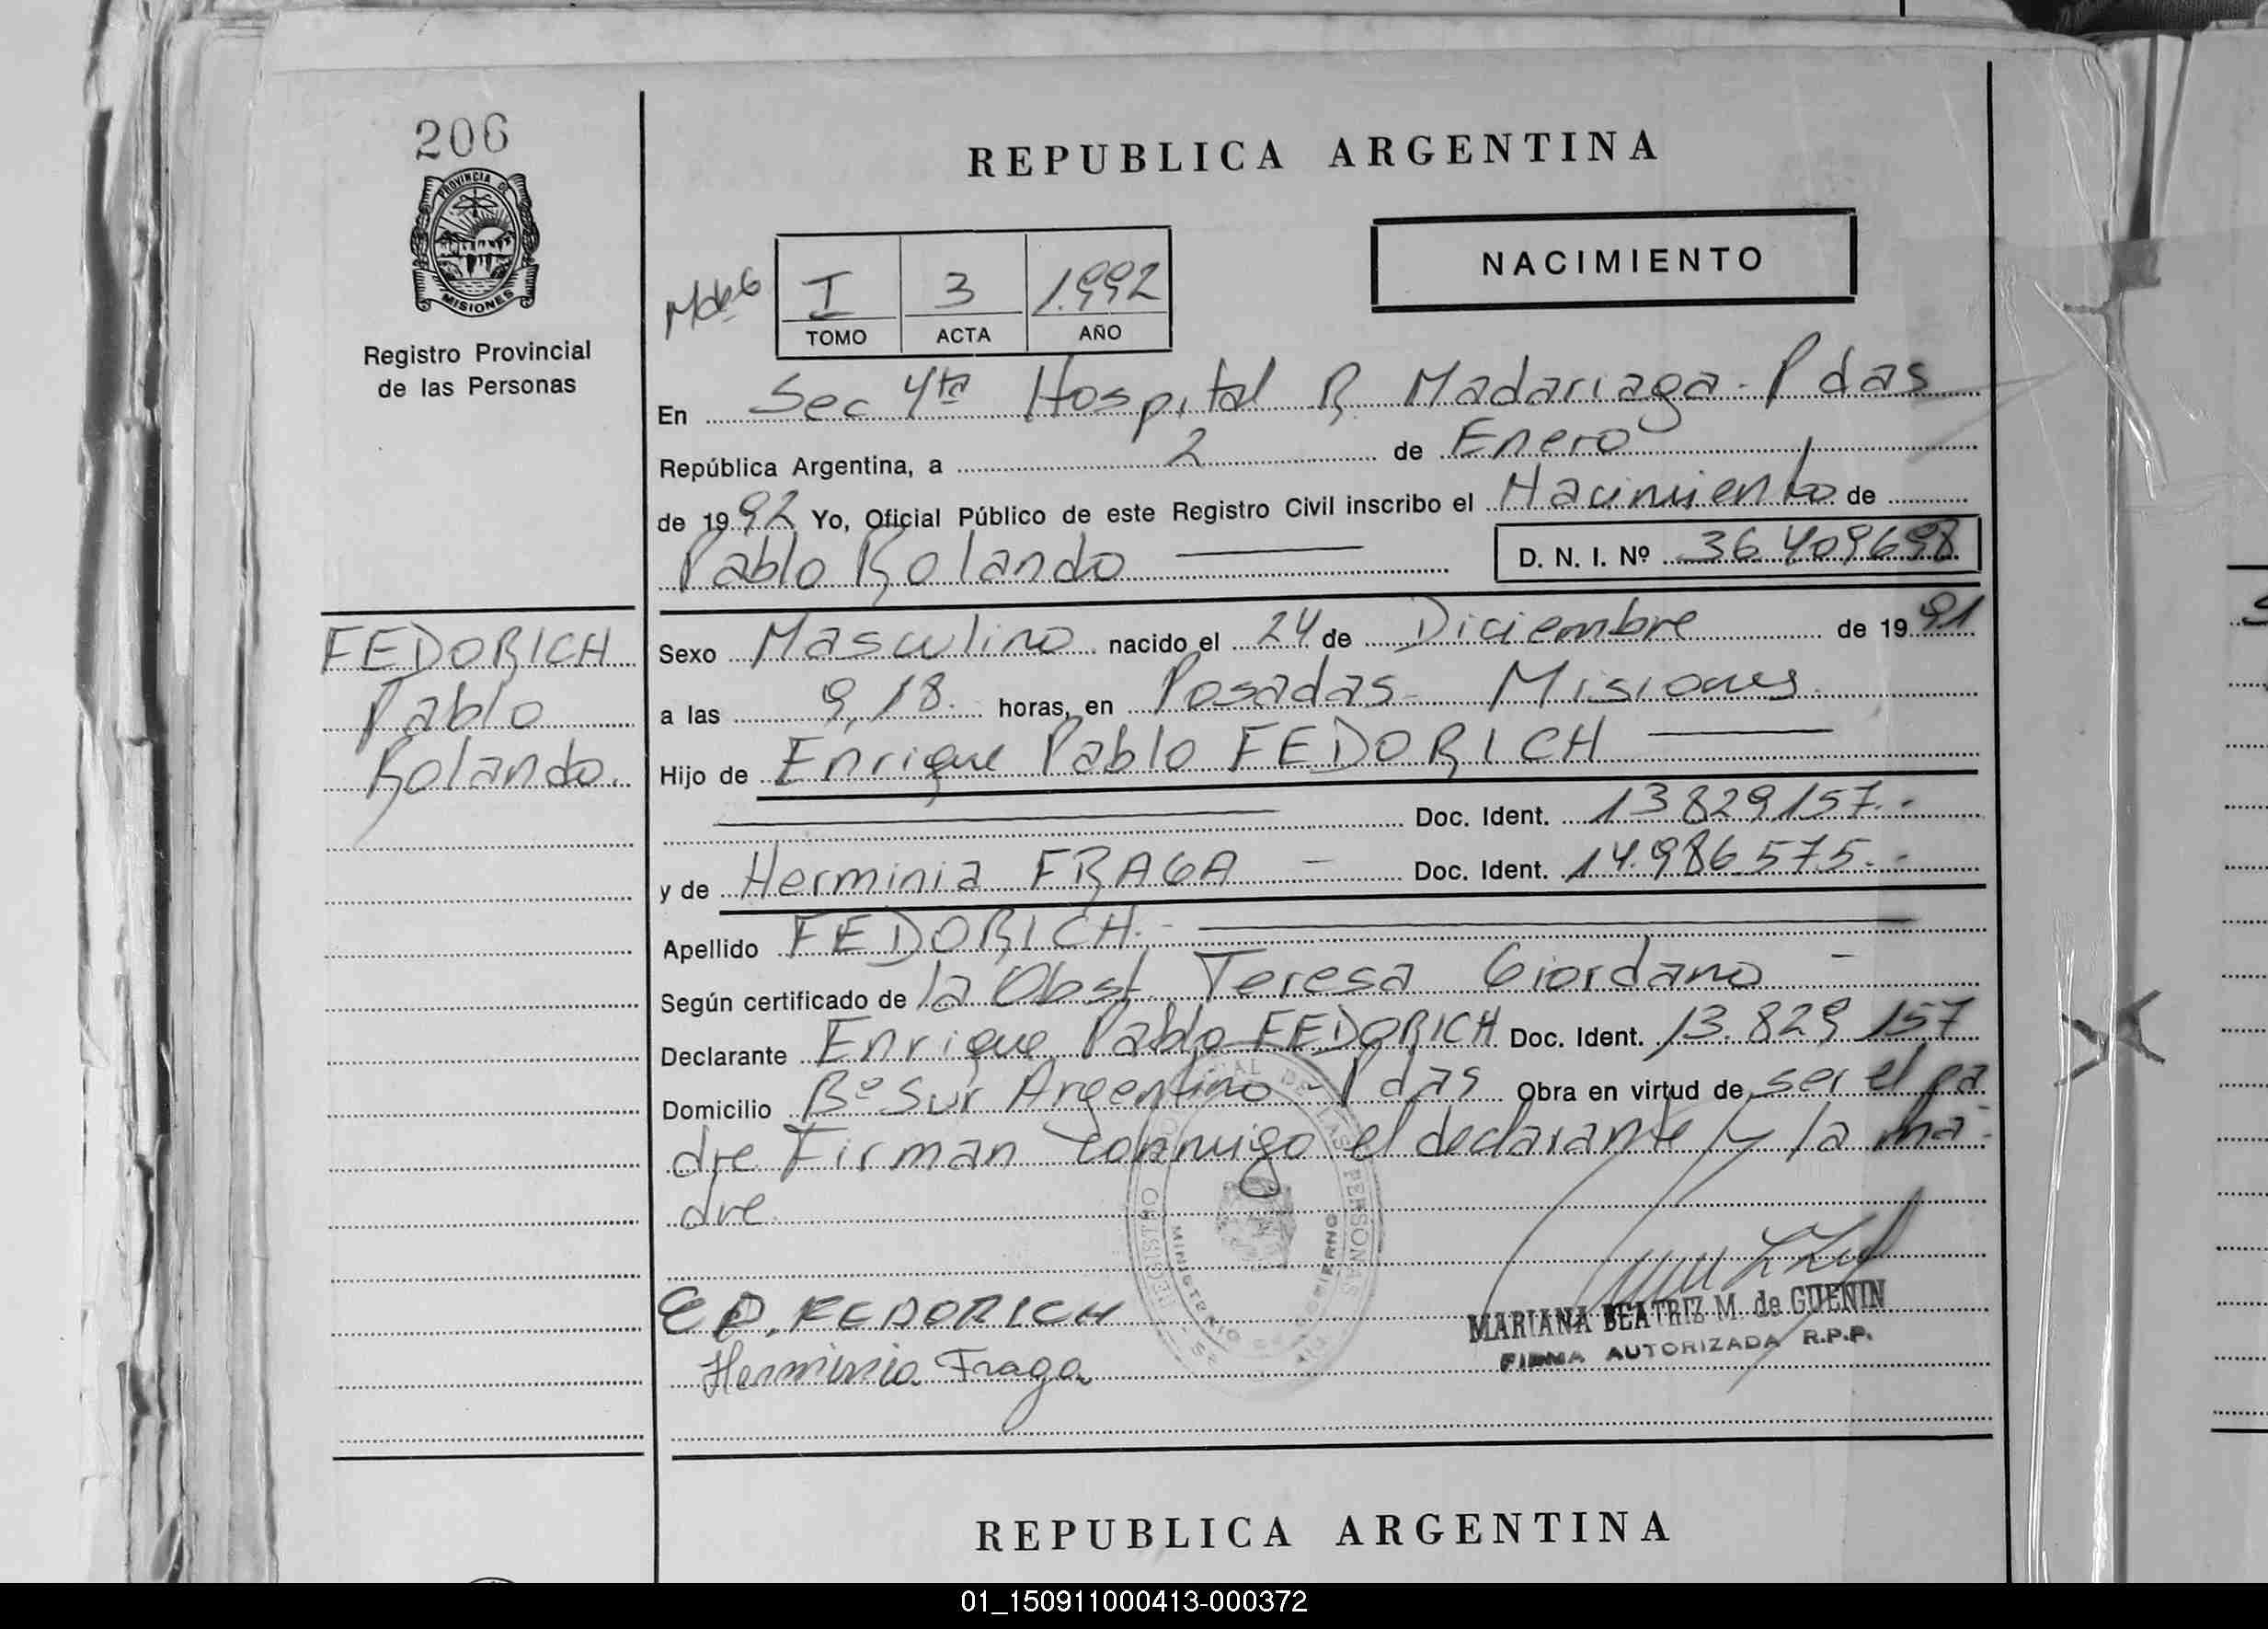 206
PROVINCIA DE
MISIONES
Registro Provincial
de las Personas
REPUBLICA ARGENTINA
NACIMIENTO
I 3 1.992
TOMO ACTA AÑO
En Sec 4ta Hospital R. Madariaga - Pdas
República Argentina, a 2 de Enero
de 1992 Yo, Oficial Público de este Registro Civil inscribo el Nacimiento de
Pablo Rolando
D. N. I. Nº 36 409698
FEDORICH
Pablo
Rolando.
Sexo Masculino nacido el 24 de Diciembre de 1991
a las 9,18. horas, en Posadas - Misiones
Hijo de Enrique Pablo FEDORICH
Doc. Ident. 13829157.-
y de Herminia FRAGA - Doc. Ident. 14.986.575.-
Apellido FEDORICH.-
Según certificado de la Obst. Teresa Giordano -
Declarante Enrique Pablo FEDORICH Doc. Ident. 13.829 157
Domicilio Bº Sur Argentino - Pdas Obra en virtud de ser el pa
dre Firman conmigo el declarante y la ma-
dre
E P. FEDORICH
Herminia Fraga
MARIANA BEATRIZ M. de GUENIN
FIRMA AUTORIZADA R.P.P.
DE LAS PERSONAS
MINISTERIO DE GOBIERNO
REPUBLICA ARGENTINA
01_150911000413-000372